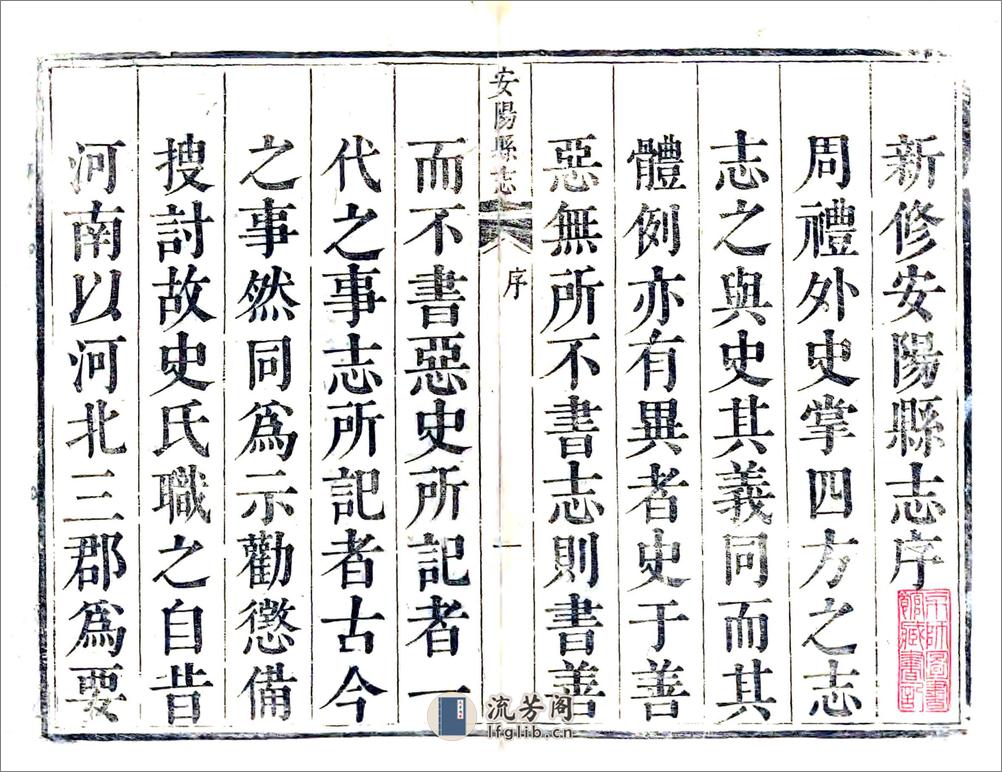 新修安陽縣志序
周禮外史掌四方之志
志之與史其義同而其
體例亦有異者史于善
惡無所不書志則書善
安陽縣志
序
一
而不書惡史所記者一
代之事志所記者古今
之事然同為示勸懲備
搜討故史氏職之自昔
河南以河北三郡為要
京師圖書
館藏書記
流芳阁
lfglib.cn